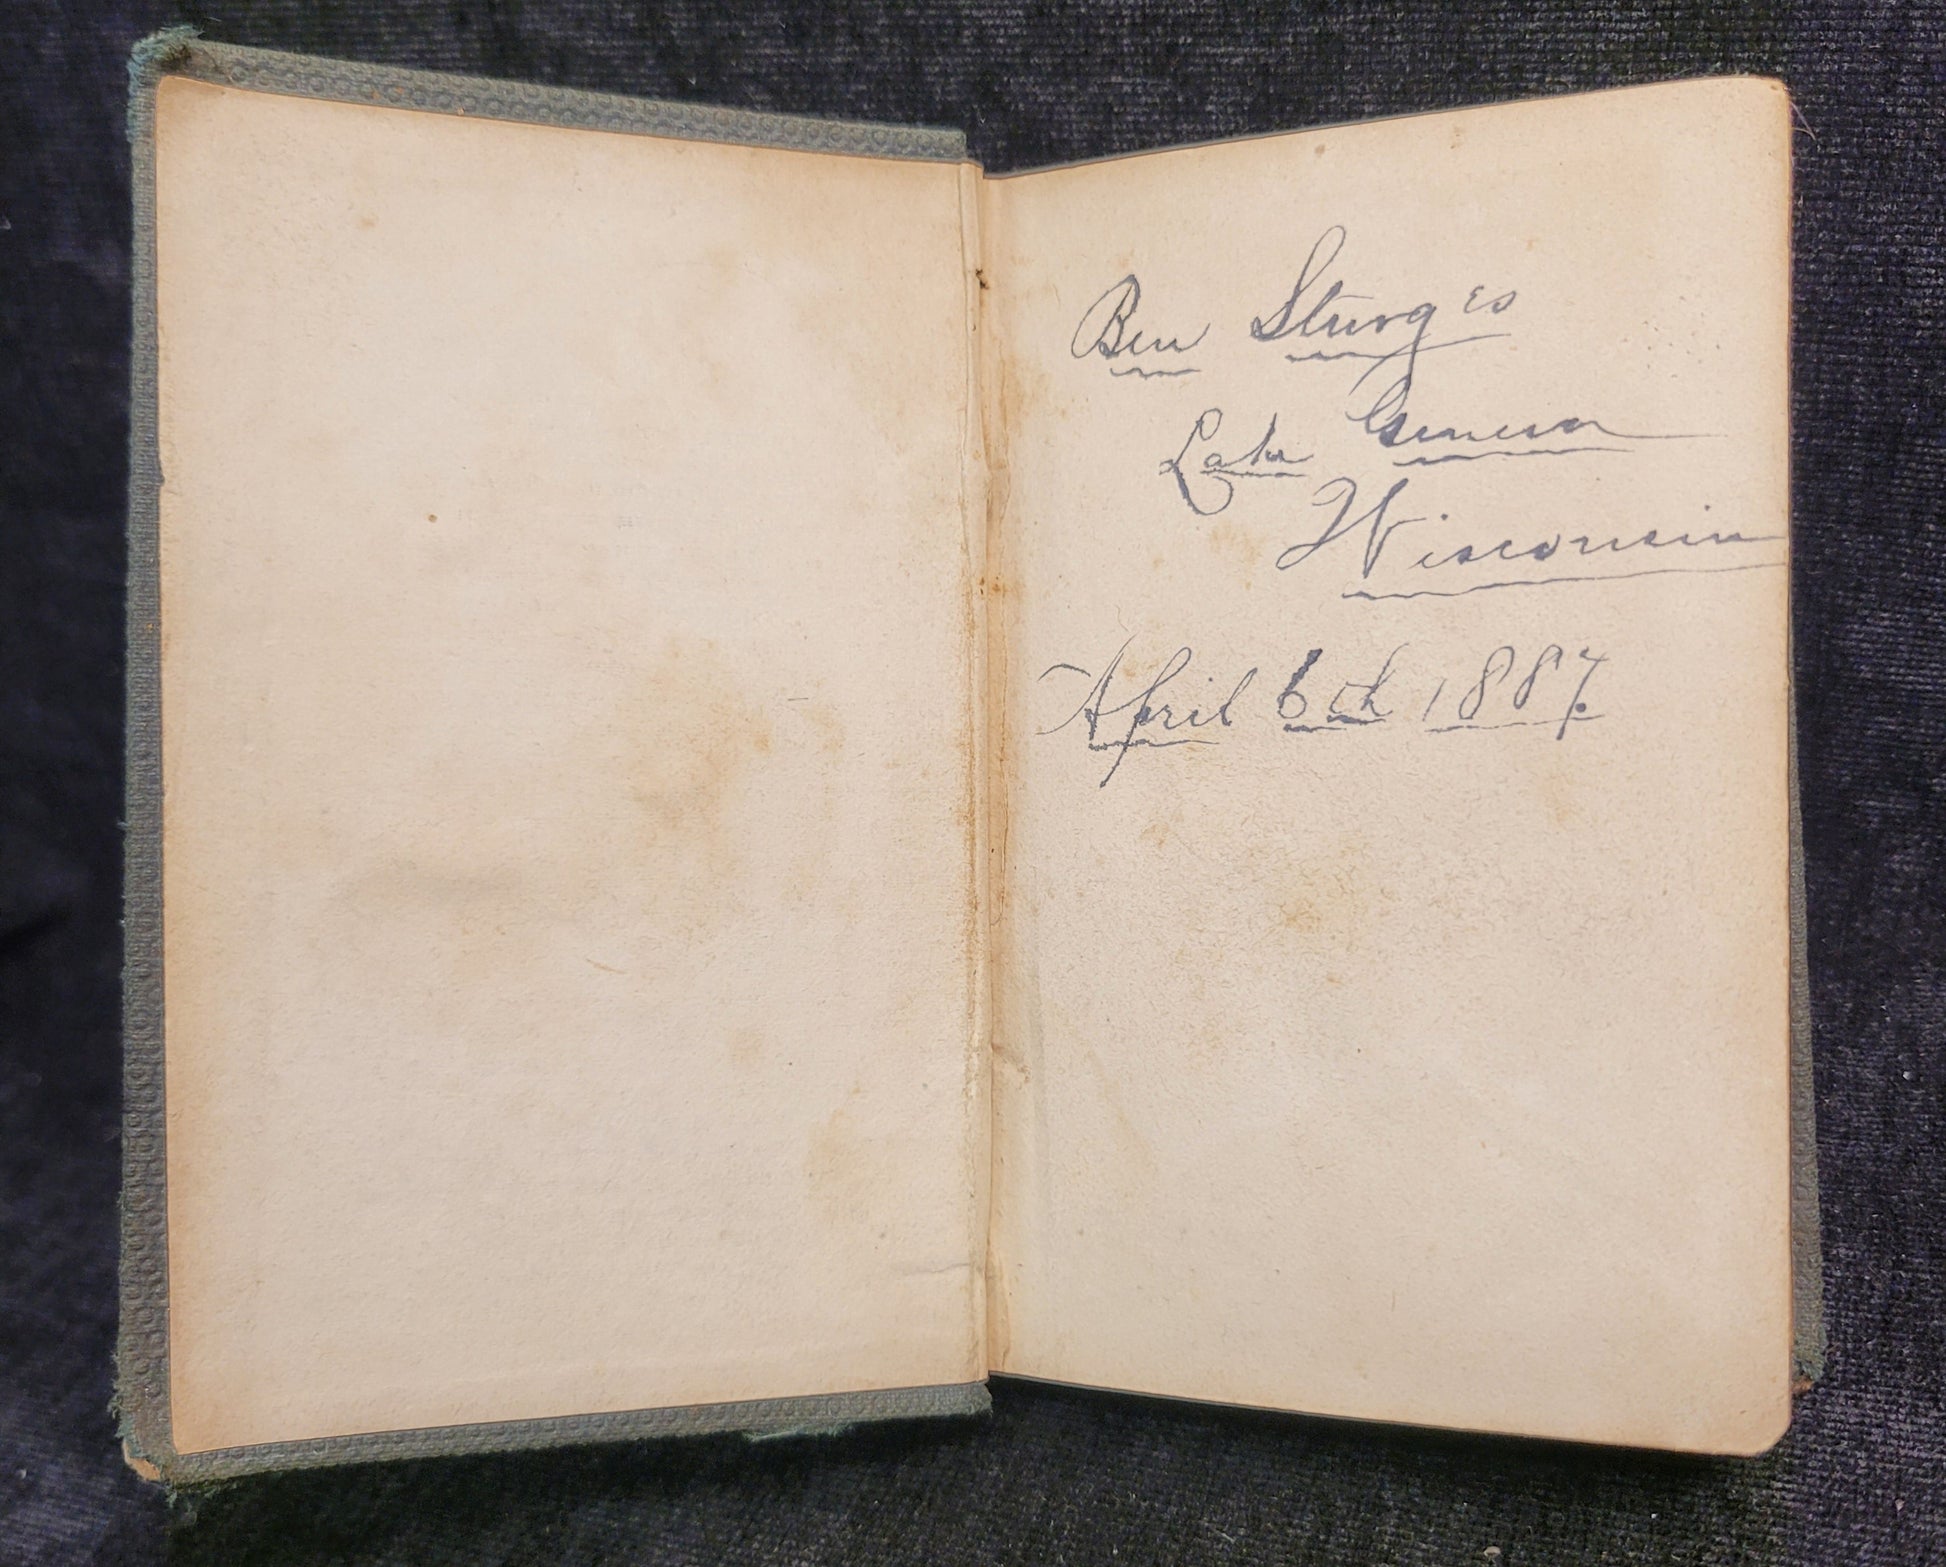 Ben Sturges
Lake Geneva
Wisconsin
April 6th 1887.